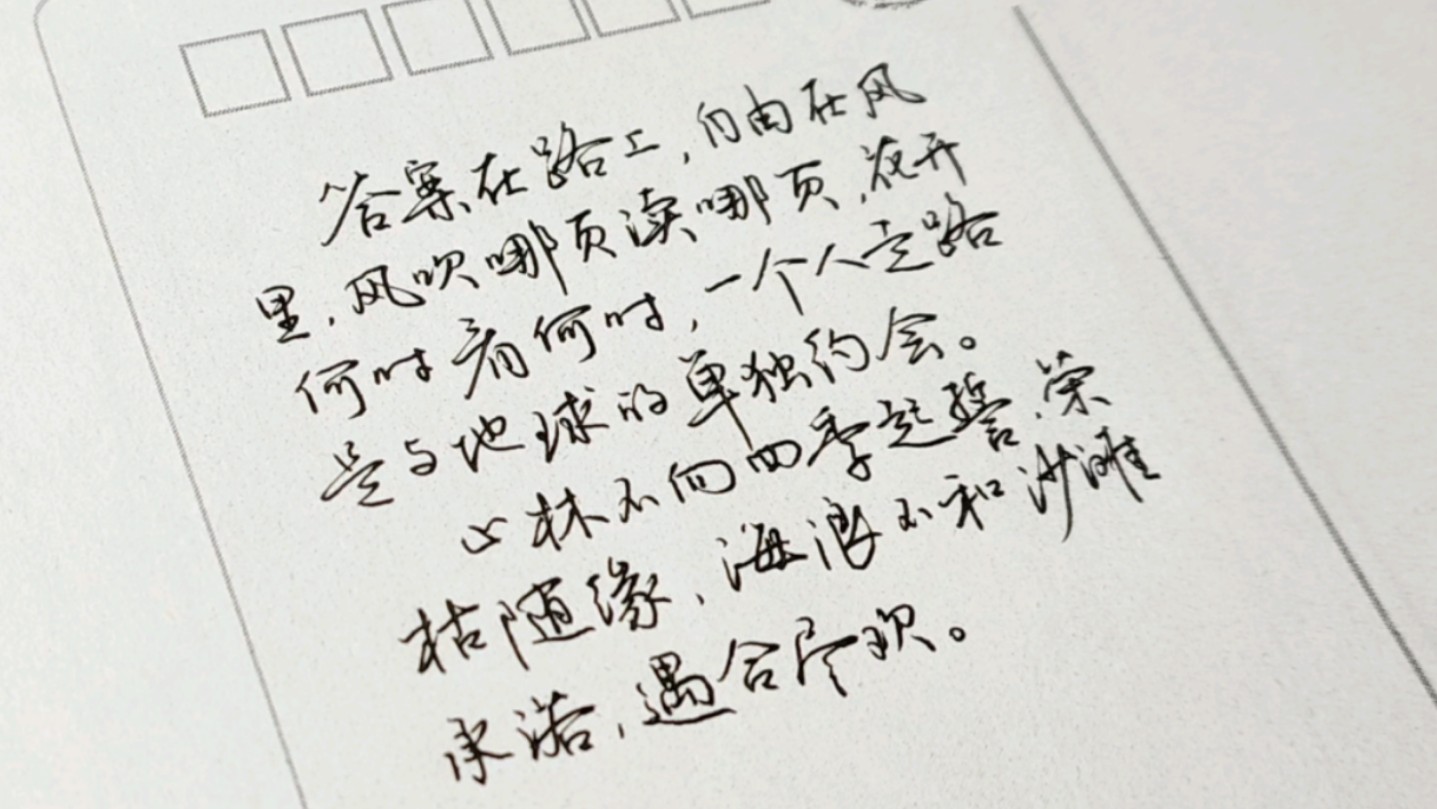 答案在路上，自由在风
里，风吹哪页读哪页，花开
何时看何时，一个人走路
是与地球的单独约会。
山林不向四季起誓，荣
枯随缘，海浪不和沙滩
承诺，遇合尽欢。